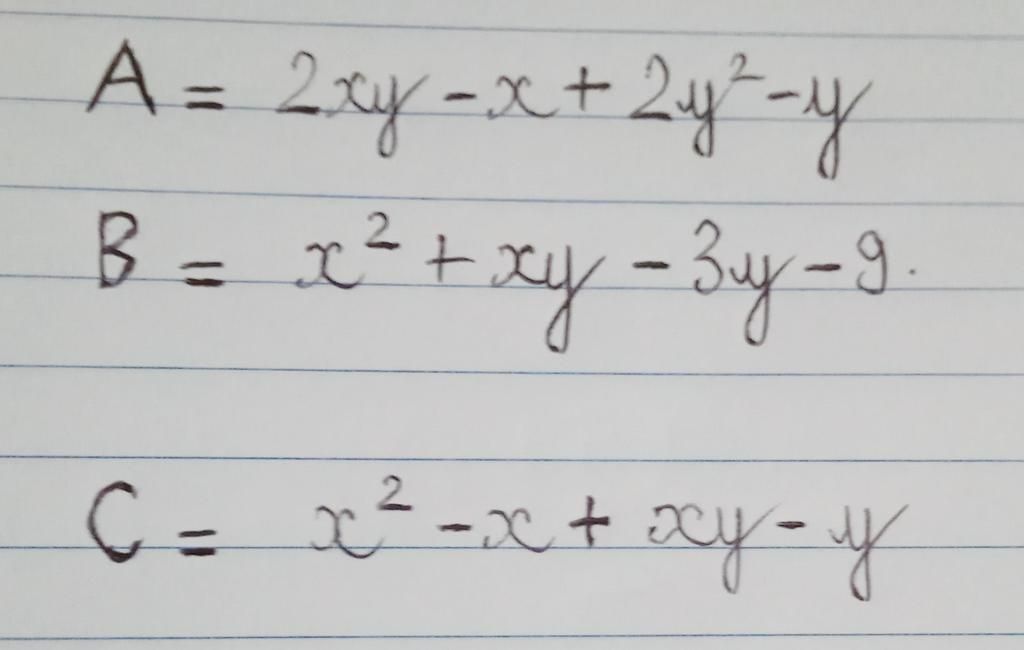 A = 2xy - x + 2y² - y
B = x² + xy - 3y - 9.
C = x² - x + xy - y